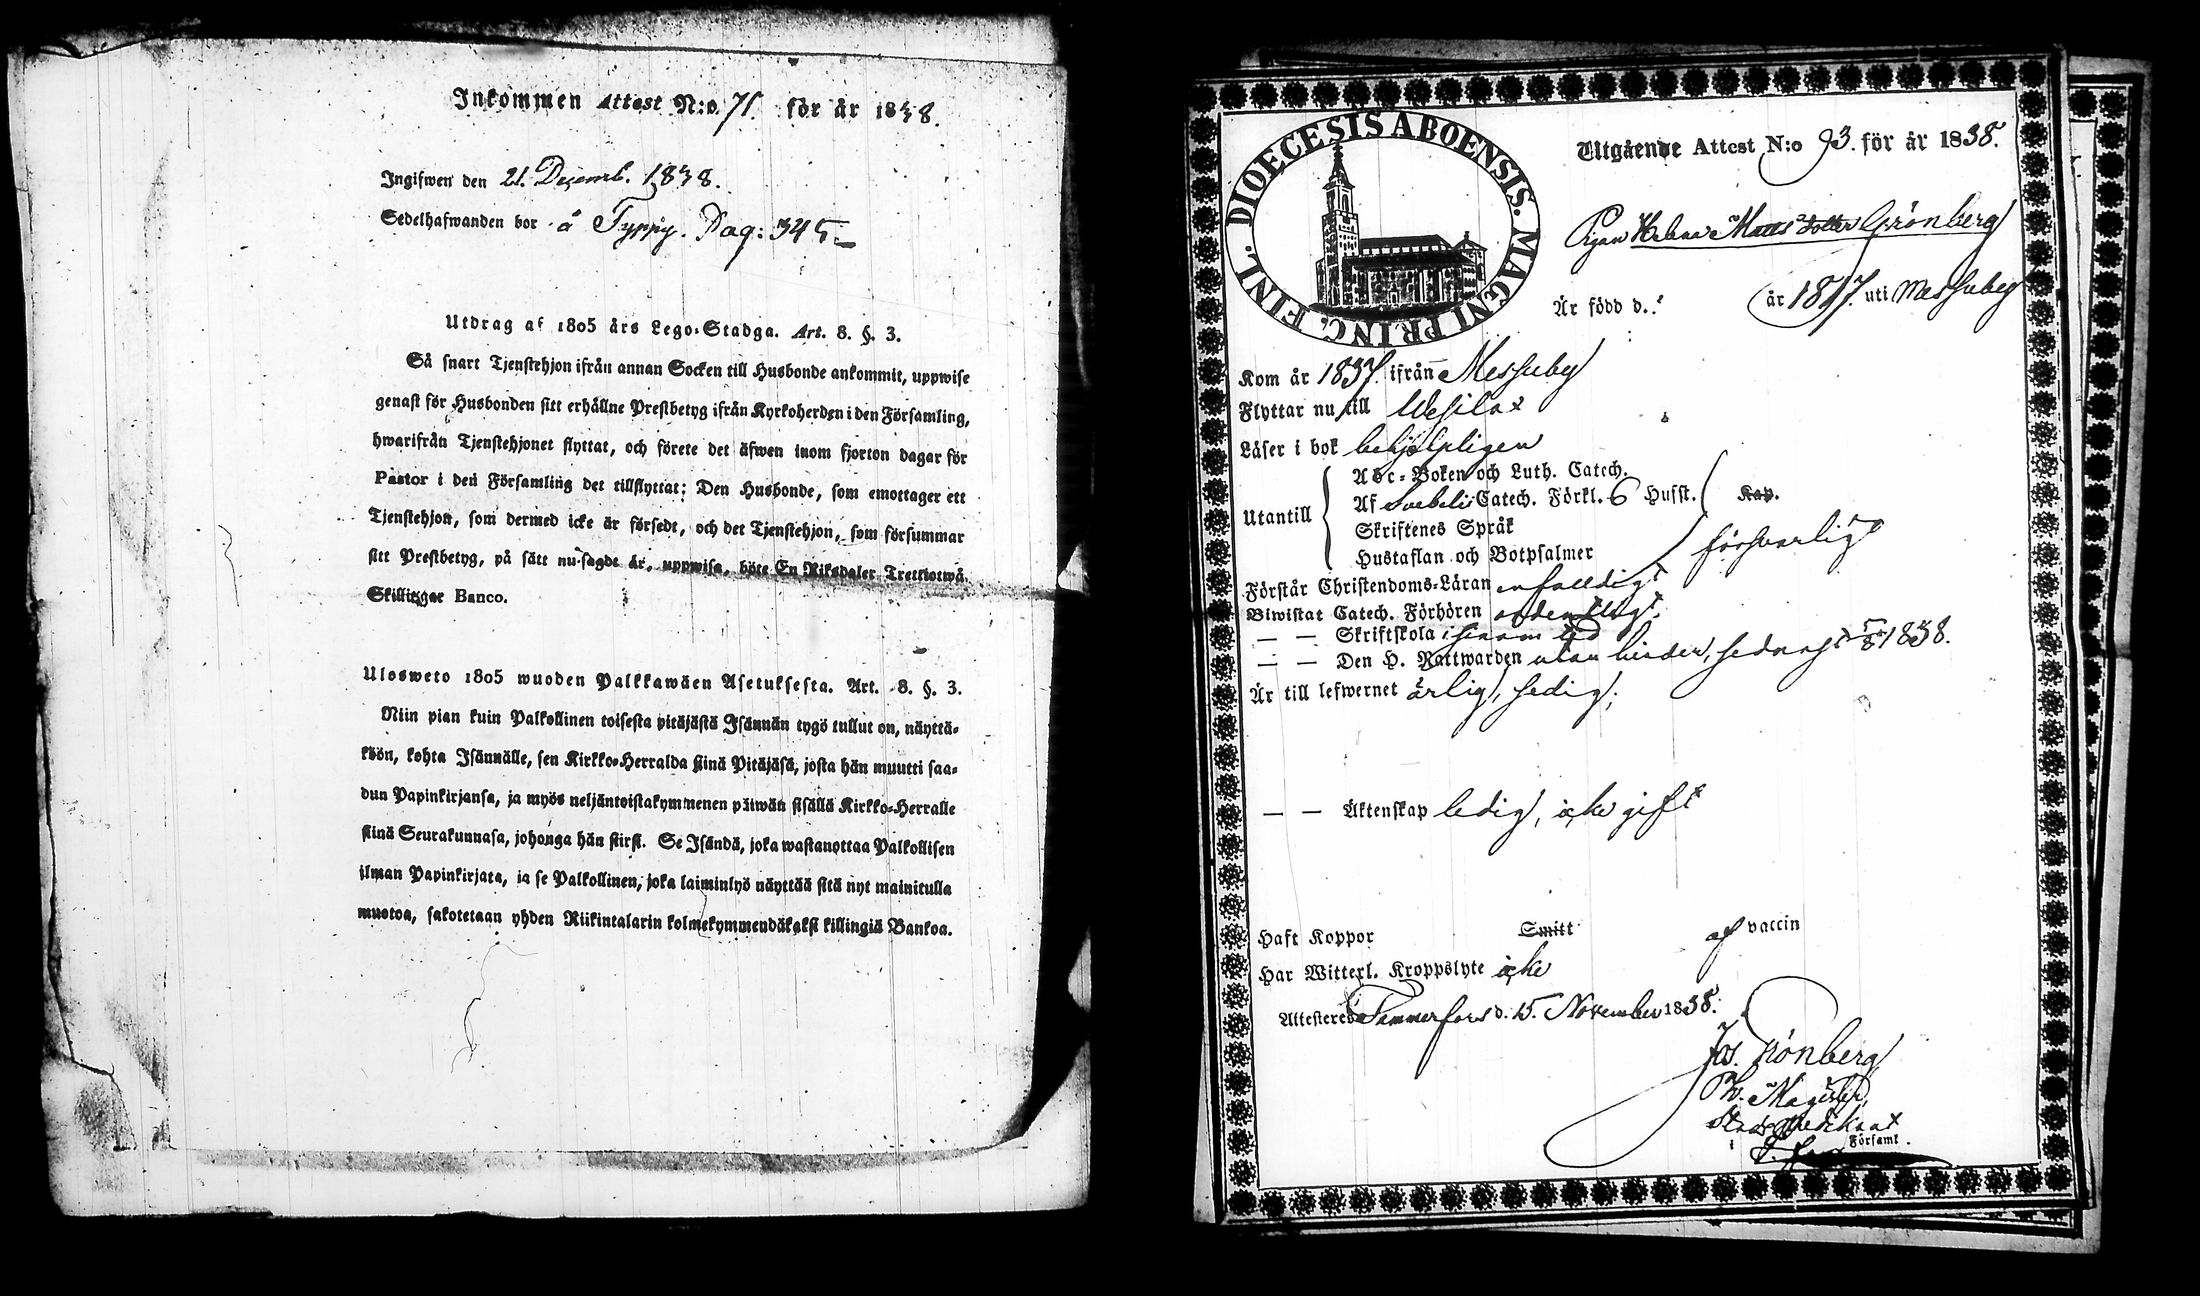 Inkommen Attest N:o 71. för år 1838.
Ingifwen den 21. Decemb. 1838.
Sedelhafwanden bor å Typpy. Pag: 345
Utdrag af 1805 års Lego-Stadga. Art. 8. §. 3.
Så snart Tjenstehjon ifrån annan Socken till Husbonde ankommit, uppwise
genast för Husbonden sitt erhållne Prestbetyg ifrån Kyrkoherden i den Församling,
hwarifrån Tjenstehjonet flyttat, och förete det äfwen inom fjorton dagar för
Pastor i den Församling det tillflyttat; Den Husbonde, som emottager ett
Tjenstehjon, som dermed icke är försedt, och det Tjenstehjon, som försummar
sitt Prestbetyg, på sätt nu sagdt är, uppwisa, böte En Riksdaler Trettiotwå
Skillingar Banco.
Ulosweto 1805 wuoden Palkkawäen Asetuksesta. Art. 8. §. 3.
Niin pian kuin Palkollinen toisesta pitäjästä Isännän tygö tullut on, näyttä-
köön, kohta Isännälle, sen Kirkko-Herralda siinä Pitäjäsä, josta hän muutti saa-
dun Papinkirjansa, ja myös neljäntoistakymmenen päiwän sisällä Kirkko-Herralle
siinä Seurakunnasa, johonga hän siirsi. Se Isändä, joka wastanottaa Palkollisen
ilman Papinkirjata, ja se Palkollinen, joka laiminlyö näyttää sitä nyt mainitulla
muotoa, sakotetaan yhden Riikintalarin kolmekymmendäkaksi killingiä Bankoa.
DIOECESIS ABOENSIS. MAGNI PRINC. FINL.
Utgående Attest N:o 93. för år 1838.
Pigan Helena Matts dotter Grönberg
Är född d. år 1817. uti Messuby
Kom år 1837. ifrån Messuby
Flyttar nu till Wesilax
Läser i bok behjelpligen
Utantill
Abc-Boken och Luth. Catech.
Af Svebelii Catech. Förkl. 6 Hufst. Kap.
Skriftenes Språk
Hustaflan och Botpsalmer
försvarligt
Förstår Christendoms-Läran enfaldigt
Biwistat Catech. Förhören ordentligt
— — Skriftskola i sinom tid
— — Den H. Nattwarden utan hinder, sednast 1838.
Är till lefwernet ärlig, sedig;
— — Äktenskap ledig, icke gift
Haft Koppor Smitt af vaccin
Har Witterl. Kroppslyte icke
Attesteres Tammerfors d. 15. November 1838.
Jos. Grönberg
Ph. Magister,
i Församl.